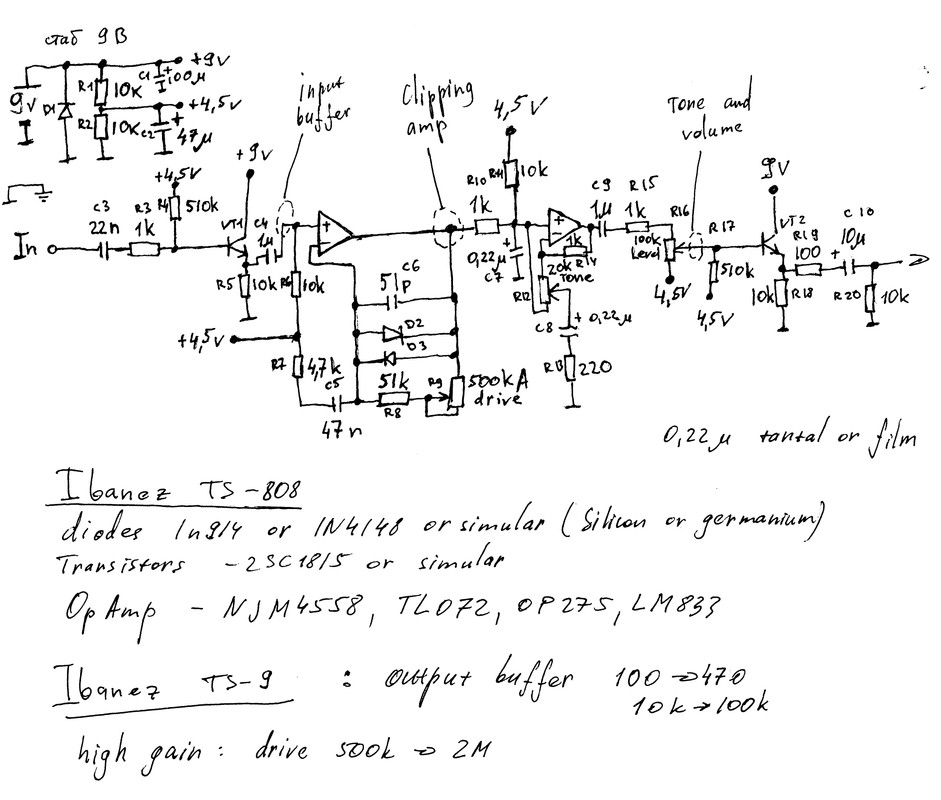 стаб 9В
+9v
C1 + 100μ
R1 10k
9v
D1
+4,5v
R2 10k C2 + 47μ
input buffer
Clipping amp
4,5V
Tone and volume
+9v
+4,5v
R4 510k
C3 22n
R3 1k
In
VT1
C4 1μ
R5 10k
R6 10k
+4,5v
R7 4,7k
C5 47n
+
−
51p C6
D2
D3
51k R8
R9 500kA drive
R10 1k
R11 10k
0,22μ C7
+
−
1k R14
20k Tone
R12
C8 + 0,22μ
R13 220
C9 1μ
R15 1k
R16 100k Level
4,5V
R17 510k
4,5V
9V
VT2
R19 100
C10 + 10μ
10k R18
R20 10k
0,22μ tantal or film
Ibanez TS-808
diodes 1n914 or 1N4148 or simular (Silicon or germanium)
Transistors - 2SC1815 or simular
Op Amp - NJM4558, TL072, OP275, LM833
Ibanez TS-9 : output buffer 100→470
10k→100k
high gain: drive 500k → 2M